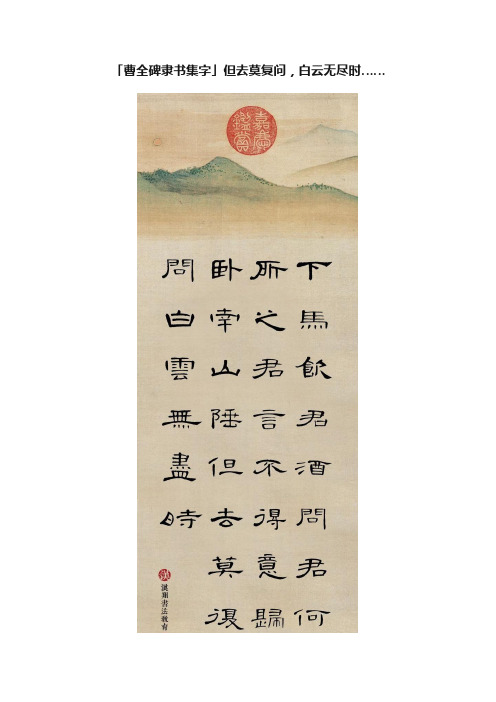 「曹全碑隶书集字」但去莫复问，白云无尽时……
嘉慶鑑賞
下馬飲君酒問君何
所之君言不得意歸
臥南山陲但去莫復
問白雲無盡時
漢翔書法教育